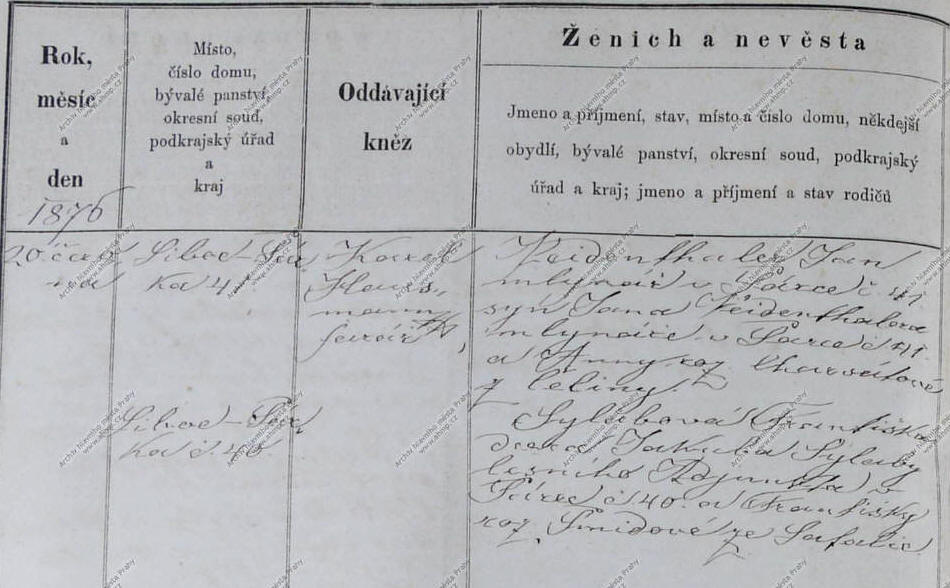 Rok,
měsíc
a
den
1876
Místo,
číslo domu,
bývalé panství,
okresní soud,
podkrajský úřad
a
kraj
Oddávající
kněz
Ženich a nevěsta
Jmeno a příjmení, stav, místo a číslo domu, někdejší
obydlí, bývalé panství, okresní soud, podkrajský
úřad a kraj; jmeno a příjmení a stav rodičů
20. červ
na
Liboc-Šár
ka 41
Karel
farář
Veidenthaler Jan
mlynář v Šárce č. 41
syn Jana Veidenthalera
mlynáře v Šárce č. 41.
a Anny roz.
z
Liboc-Šár
ka č. 40
Sylabová Františka
dcera Jakuba Sylaby
lesního Adjunkta v
Šárce č 40. a Františky
roz. Šmidové ze
Archiv hlavního města Prahy
www.ahmp.cz